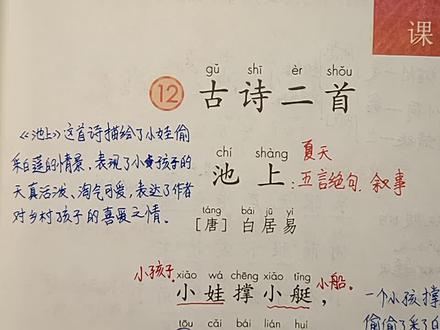 课
gǔ shī èr shǒu
12 古诗二首
《池上》这首诗描绘了小娃偷
采白莲的情景，表现了小孩子的
天真活泼、淘气可爱，表达了作者
对乡村孩子的喜爱之情。
夏天
chí shàng
池上：五言绝句 叙事
táng bái jū yì
[唐] 白居易
小孩子
xiǎo wá chēng xiǎo tǐng
小娃撑小艇，
小船。
tōu cǎi bái lián huí
一个小孩撑
偷偷了采了白